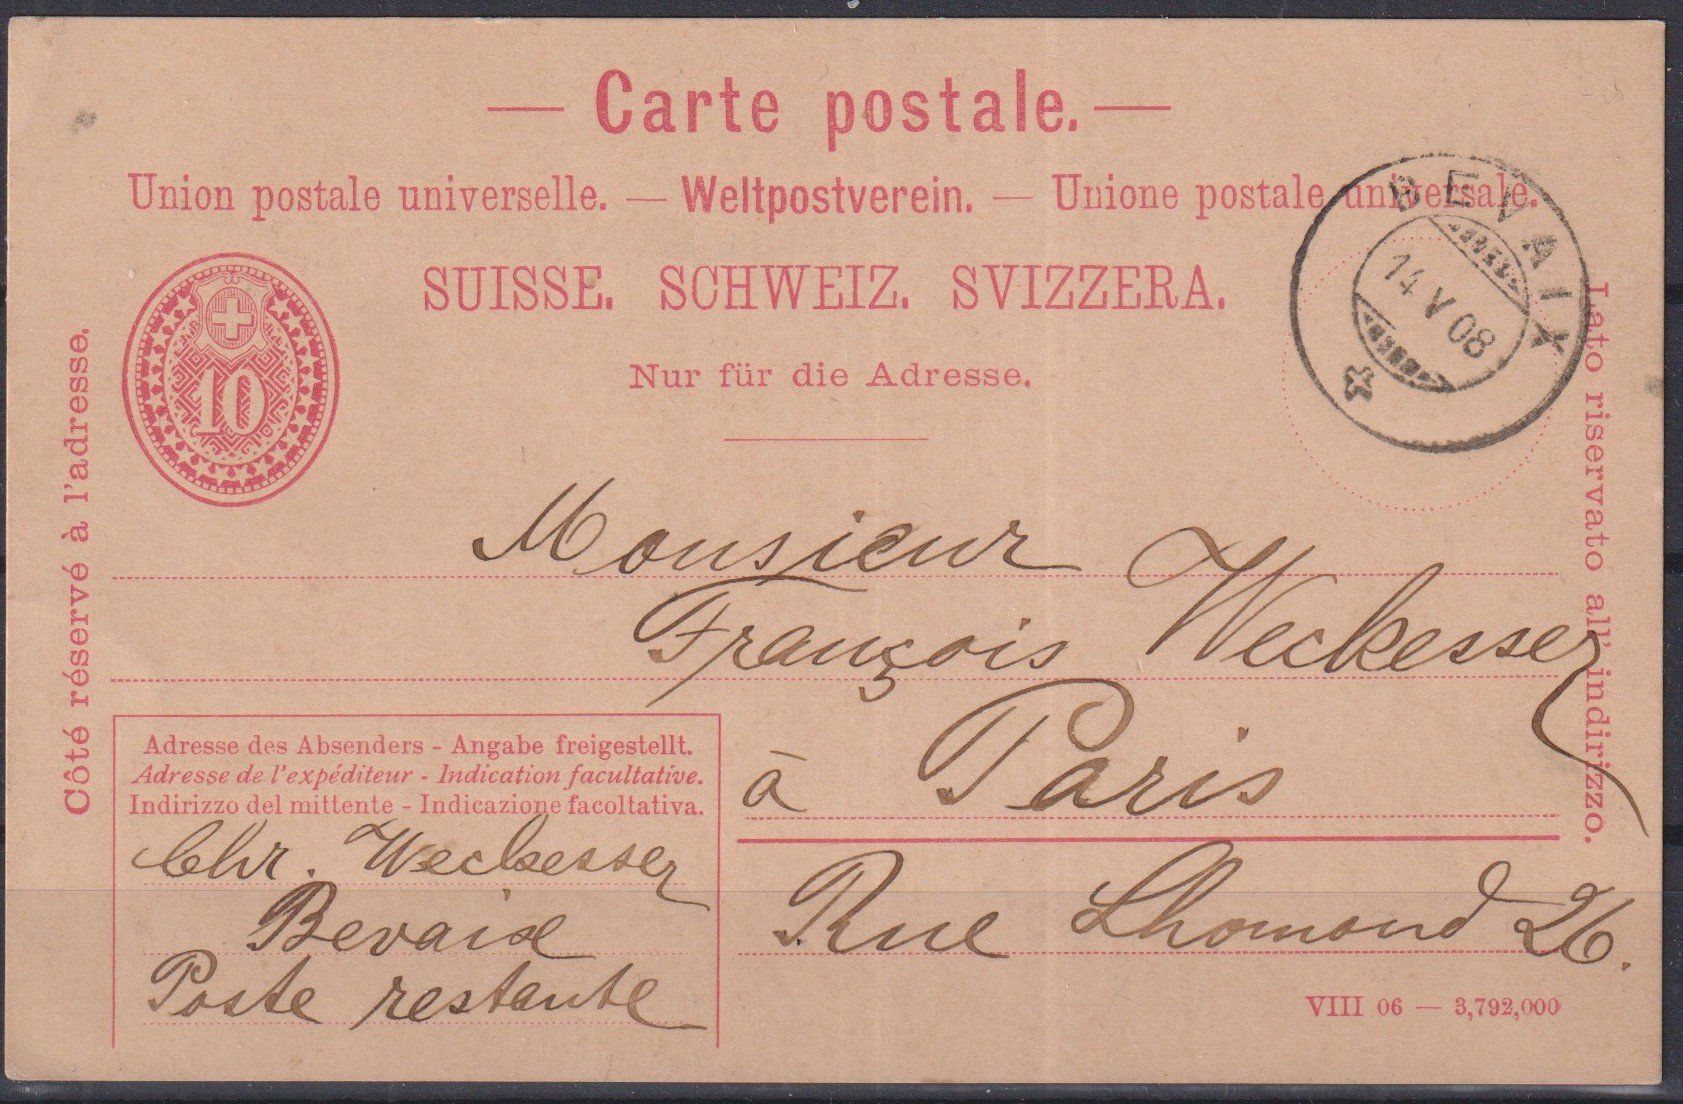 — Carte postale. —
Union postale universelle. — Weltpostverein. — Unione postale universale.
SUISSE. SCHWEIZ. SVIZZERA.
Nur für die Adresse.
10
BEVAIX
14 V 08
Côté réservé à l'adresse.
Lato riservato all' indirizzo.
Monsieur
François Weckesser
à Paris
Rue Lhomond 26.
Adresse des Absenders - Angabe freigestellt.
Adresse de l'expéditeur - Indication facultative.
Indirizzo del mittente - Indicazione facoltativa.
Chr. Weckesser
Bevaix
Poste restante
VIII 06 — 3,792,000